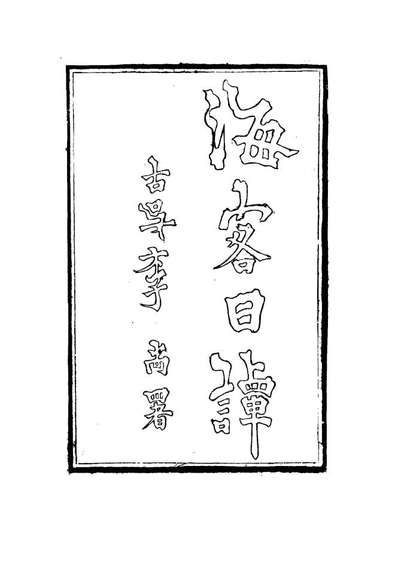 海客日譚
古 李尚署